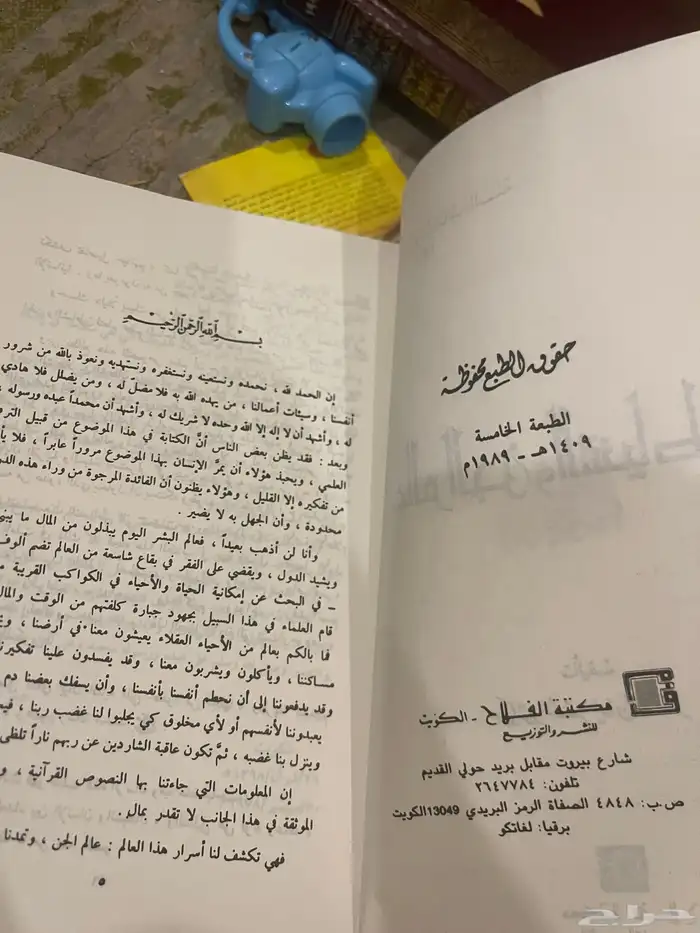 حقوق الطبع محفوظة
الطبعة الخامسة
١٤٠٩هـ - ١٩٨٩م
مكتبة الفلاح - الكويت
للنشر والتوزيع
شارع بيروت مقابل بريد حولي القديم
تلفون: ٢٦٤٧٧٨٤
ص.ب: ٤٨٤٨ الصفاة الرمز البريدي 13049 الكويت
برقيا: لغاتكو
بسم الله الرحمن الرحيم
إن الحمد لله ، نحمده ونستعينه ونستغفره ونستهديه ونعوذ بالله من شرور
أنفسنا ، وسيئات أعمالنا ، من يهده الله به فلا مضلّ له ، ومن يضلل فلا هادي
له ، وأشهد أن لا إله إلا الله وحده لا شريك له ، وأشهد أن محمداً عبده ورسوله .
وبعد : فقد يظن بعض الناس أنّ الكتابة في هذا الموضوع من قبيل
العلمي ، ويحبذ هؤلاء أن يمرّ الإنسان بهذا الموضوع مروراً عابراً ، فلا
من تفكيره إلا القليل ، وهؤلاء يظنون أن الفائدة المرجوة من وراء هذه
محدودة ، وأن الجهل به لا يضير .
وأنا لن أذهب بعيداً ، فعالم البشر اليوم يبذلون من المال ما
ويشيد الدول ، ويقضي على الفقر في بقاع شاسعة من العالم تضم
– في البحث عن إمكانية الحياة والأحياء في الكواكب القريبة
قام العلماء في هذا السبيل بجهود جبارة كلفتهم من الوقت والمال
فما بالكم بعالم من الأحياء العقلاء يعيشون معنا في أرضنا ،
مساكننا ، ويأكلون ويشربون معنا ، وقد يفسدون علينا تفكيرنا
وقد يدفعوننا إلى أن نحطم أنفسنا بأنفسنا ، وأن يسفك بعضنا دم
يعبدوننا لأنفسهم أو لأي مخلوق كي يجلبوا لنا غضب ربنا ،
وينزل بنا غضبه ، ثمّ تكون عاقبة الشاردين عن ربهم ناراً تلظى
إن المعلومات التي جاءتنا بها النصوص القرآنية ،
الموثقة في هذا الجانب لا تقدر بمال .
فهي تكشف لنا أسرار هذا العالم : عالم الجن ،
٥
حراج